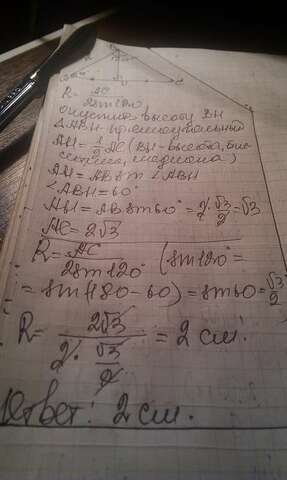 R = AC / 2sin120
Опустим высоту BH
△ABH - прямоугольный
AH = 1/2 AC (BH - высота, бис-
сектриса, медиана)
AH = AB sin ∠ABH
∠ABH = 60°
AH = AB sin 60° = 2·√3/2 = √3
AC = 2√3
R = AC / 2sin120° (sin120° =
= sin(180-60) = sin60 = √3/2
R = 2√3 / 2·√3/2 = 2 см.
Ответ: 2 см.